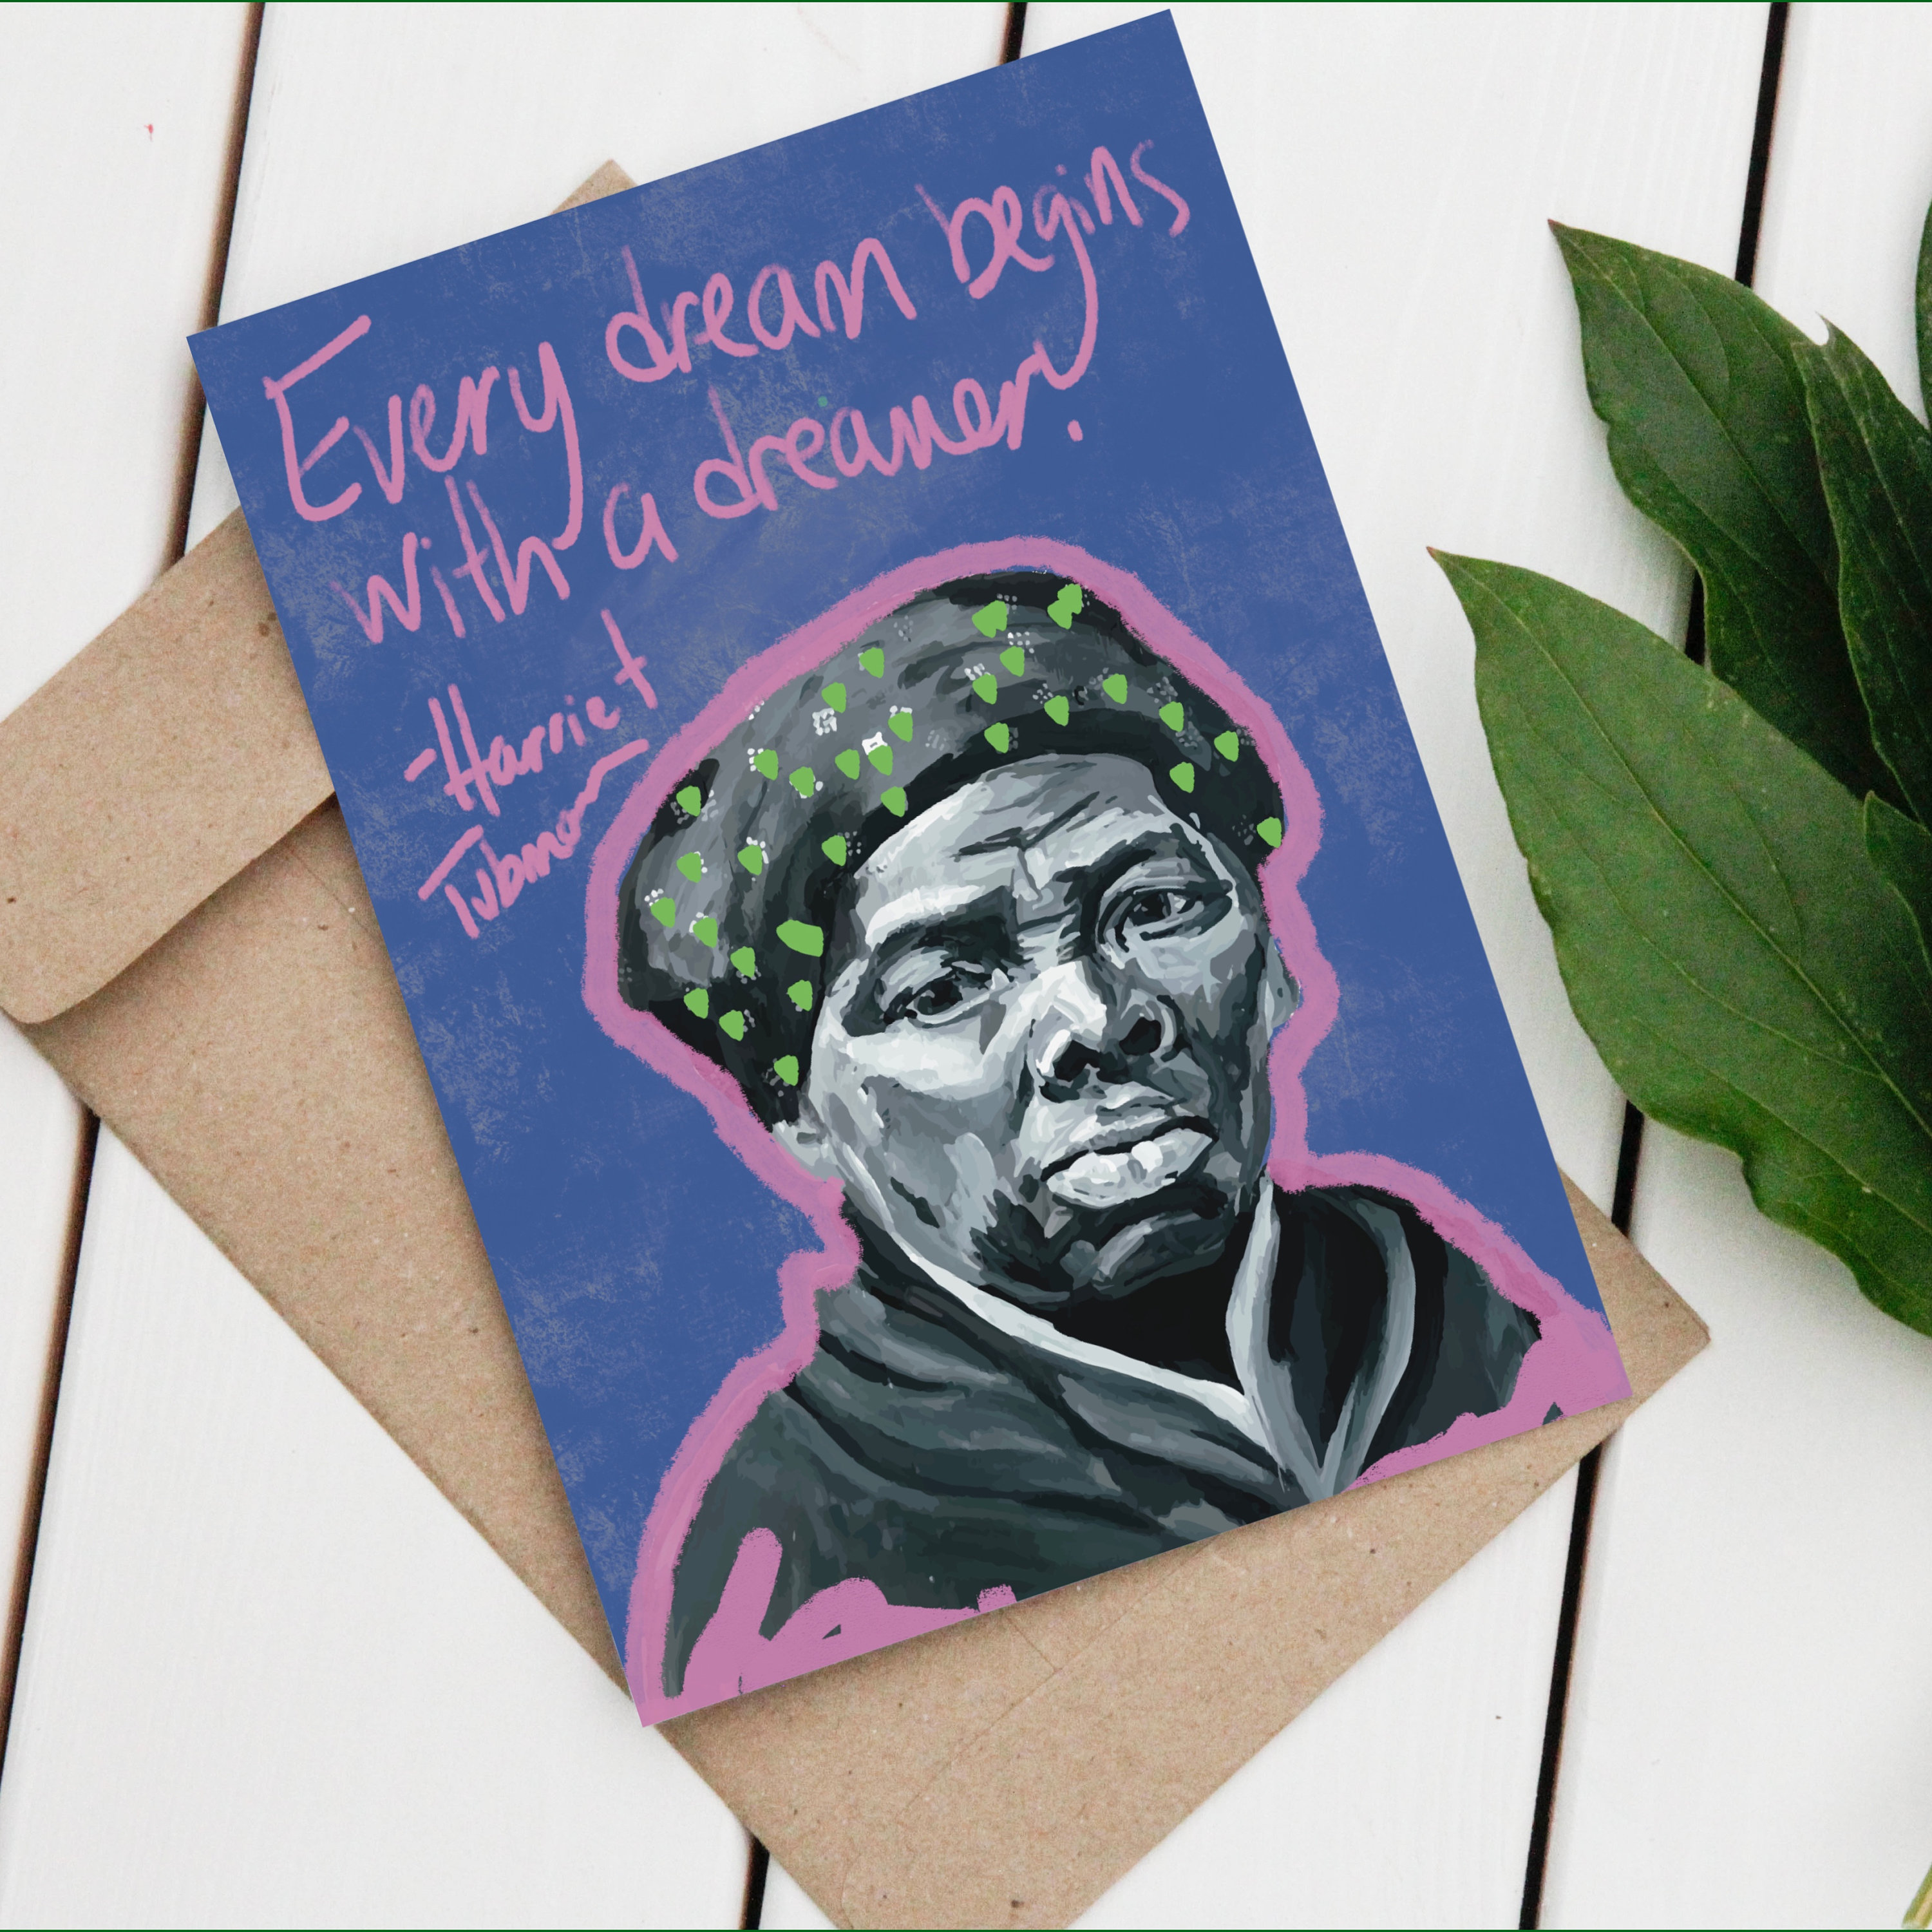 Every dream begins
with a dreamer.
-Harriet
Tubman